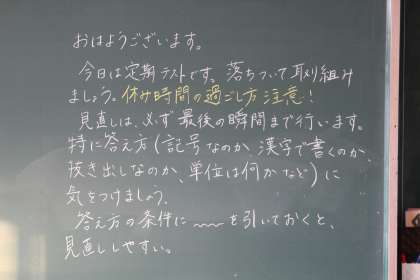 おはようございます。
今日は定期テストです。落ちついて取り組み
ましょう。休み時間の過ごし方注意!
見直しは、必ず最後の瞬間まで行います。
特に答え方(記号なのか、漢字で書くのか、
抜き出しなのか、単位は何かなど)に
気をつけましょう。
答え方の条件に〰〰を引いておくと、
見直ししやすい。